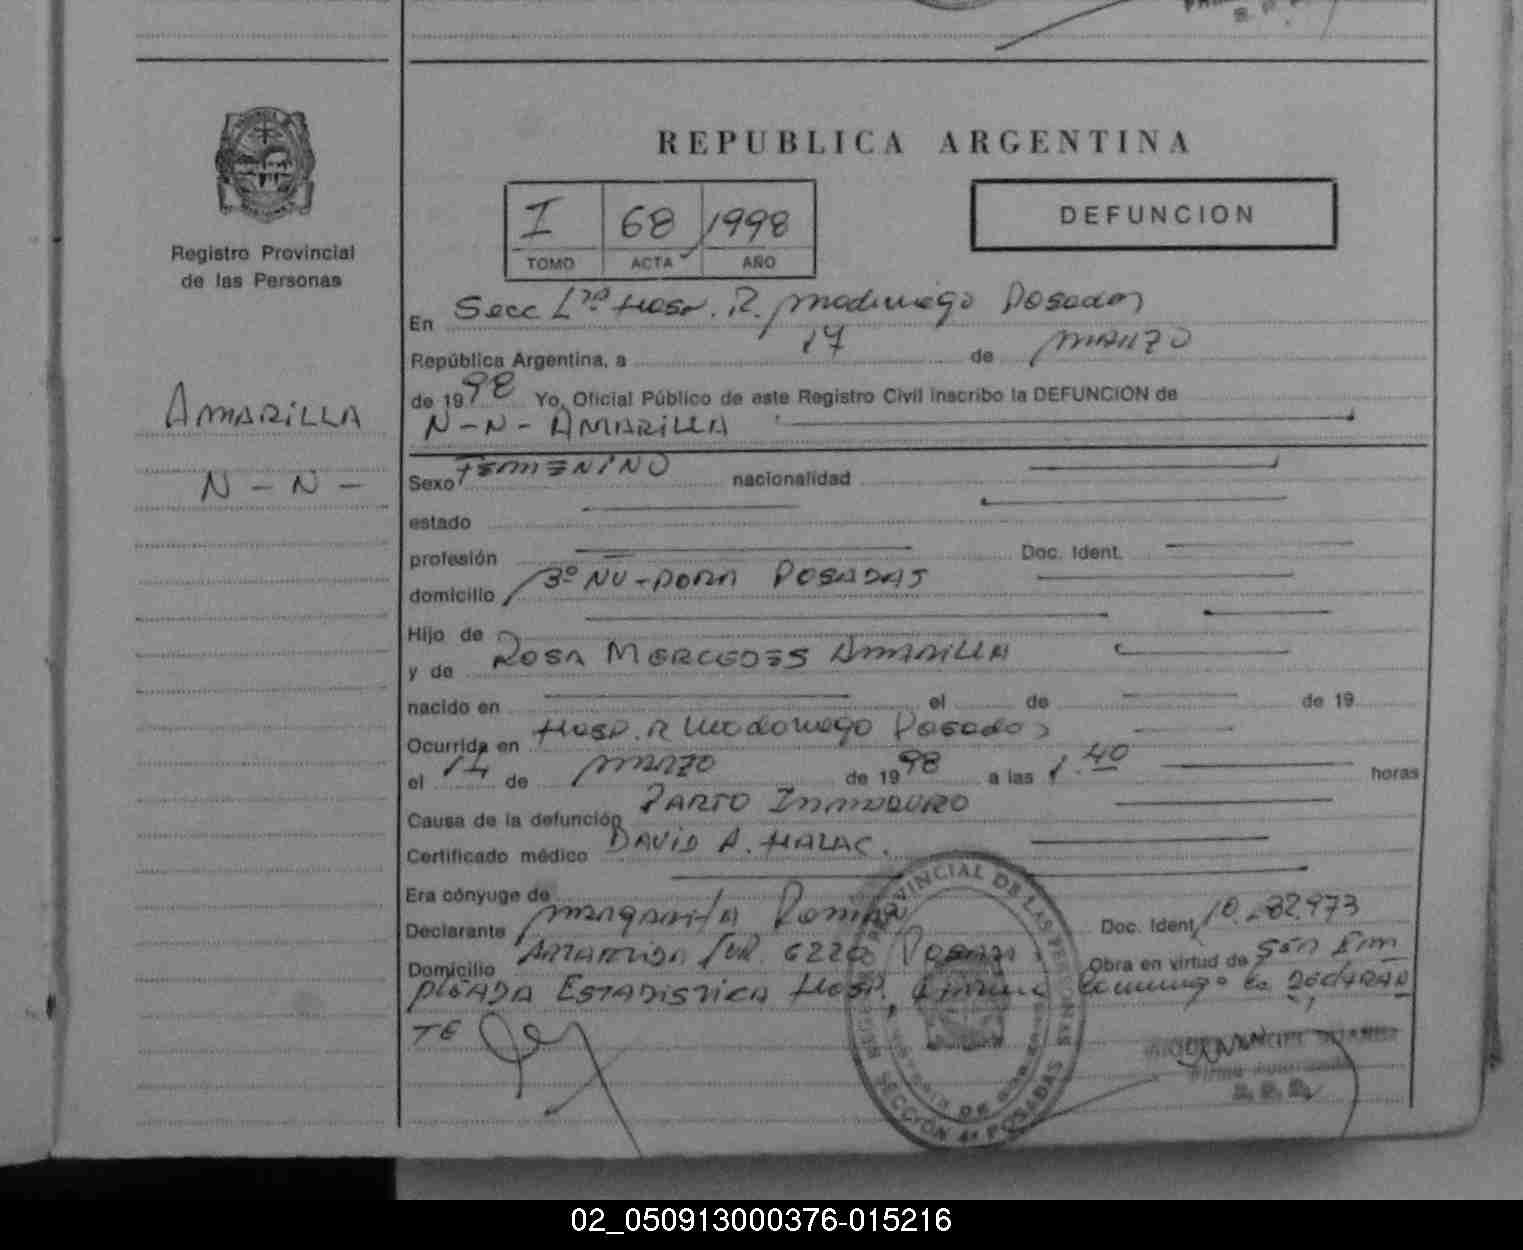 REPUBLICA ARGENTINA
Registro Provincial
de las Personas
I 68 1998
TOMO ACTA AÑO
DEFUNCION
En Secc Hosp. R. Madariaga Posadas
República Argentina, a 17 de MARZO
de 1998 Yo, Oficial Público de este Registro Civil inscribo la DEFUNCION de
AMARILLA
N-N-
N-N- AMARILLA
Sexo FEMENINO nacionalidad
estado
profesión Doc. Ident.
domicilio POSADAS
Hijo de
y de ROSA MERCEDES AMARILLA
nacido en el de de 19
Ocurrida en Hosp. R Madariaga Posadas
el 14 de MARZO de 1998 a las 1.40 horas
Causa de la defunción PARTO INMADURO
Certificado médico DAVID A. HALAC.
Era cónyuge de
Declarante MARGARITA Doc. Ident.
Domicilio 6220 Obra en virtud de SER EM
PLEADA ESTADISTICA HOSP. DECLARAN
TE
REGISTRO PROVINCIAL DE LAS PERSONAS
SECCIÓN 4ª POSADAS
02_050913000376-015216